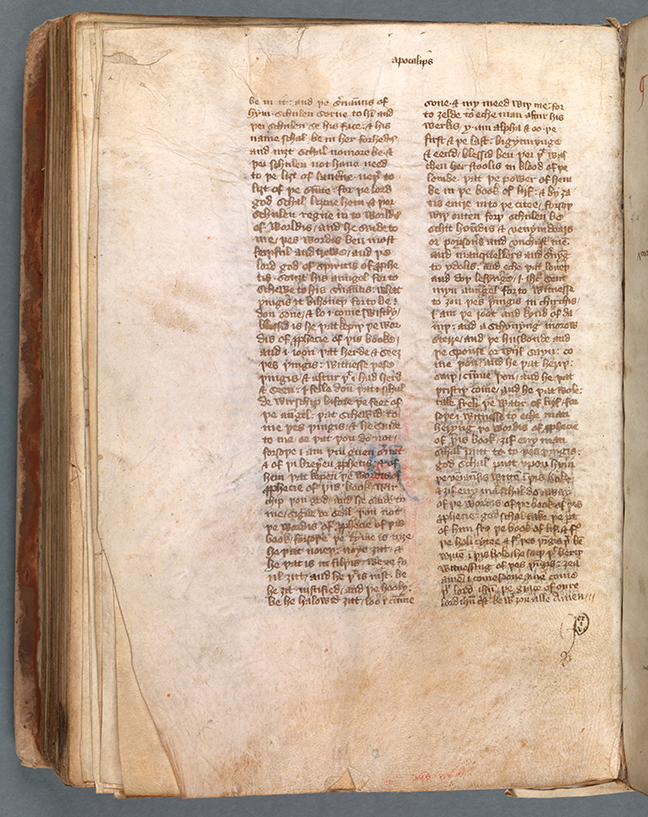 apocalips
be in it: and þe s̃uauntis of
hym schulen serue to hī and
þei schulen se his face & his
name schal be in her forhedis
and niȝt schal nomore be &
þei schulen not haue need
to þe liȝt of lanterne neyþ to
liȝt of þe sunne for þe lord
god schal liȝtne hem & þei
schulen regne in to worldis
of worldis / and he seide to
me / þes wordis ben most
feiþful and trewe / and þe
lord god of spiritis of ꝓphe
tis sente his aungel for to
schewe to his s̃uauntis: what
þingis it bihoueþ for to be
don sone / & lo i come swiftly /
blessid is he þat kepiþ þe wor
dis of ꝓphecie of þis booke /
and i ioon þat herde & seeȝ
þes þingis: witnesse
þingis & aftur þt i had herd
& seen: i felle doun þat i schul
de worschip bifore þe feet of
þe angel: þat schewid to
me þes þingis / & he seide
to me se þat þou do not /
forsoþe i am þin euen s̃uaunt
& of þi breþeren ꝓphetis / and of
hem þat kepen þe wordis of
ꝓphecie of þis book / wor
chip þou god / and he seide to
me / signe or seal þou not
þe wordis of ꝓphecie of þis
book / forsoþe þe tyme is niȝe
he þat noieþ: noȝe ȝitt / &
he þat is in filþis: wexe fo
ul ȝitt / and he þt is iust: be
he ȝit iustified / and þe hooly:
be he halowid ȝitt / loo i cūme
sone / & my meed wiþ me: for
to ȝelde to eche man aftur his
werkis y am alpha & oo þe
first & þe last: bigynnynge
& eend / blessid ben þei þt wa
schen her stoolis in blood of þe
lombe: þat þe power of hem
be in þe book of lijf: & by ȝa
tis entre into þe citee / forsoþ
wiþ outen forþ schulen be
schit houndis & venymdoars
or poysons and vnchast me
and manquellers and s̃uyng
to ydolis: and eche þat loueþ
and doþ lesynge / i ihc̄ sent
myn aungel for to witnesse
to ȝou þes þingis in chirchis /
i am þe root and kynd of da
uiþ: and a schynyng morow
sterre / and þe husbonde and
þe spouse or wijf seyn: co
me þou / and he þat heriþ:
sey / cūme þou / and he þat
þristiþ come / and he þat wole:
take frely þe water of lijf / for
soþe i witnesse to eche man
heryng þe wordis of ꝓphecie
of þis book: ȝif eny man
schal putt to to þes þingis:
god schal putt vpon hym
veniaunces writē i þis book /
& ȝif eny mā schal do away
of þe wordis of þe book of þis
ꝓphecie: god schal take þe pt̄
of him fro þe book of lijf / & fro
þe holi citee & fro þes þingis þt be
writē i þis book / he seiþ þt beriþ
witnessing of þes þingis: ȝea
amē / i come sone / amē come
þu lord ihū / þe grace of oure
lord ihū c̄st be wiþ ȝou alle Amen ///